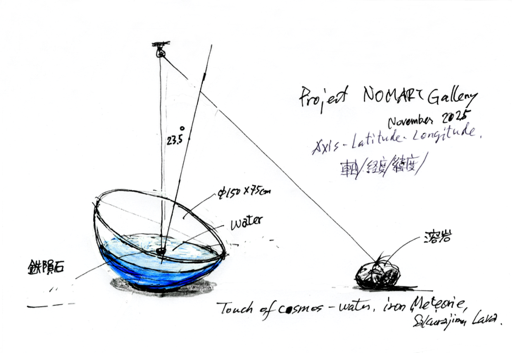 Project NOMART Gallery
November 2025
Axis - Latitude - Longitude.
軸/経度/緯度/
23.5°
φ150×75cm
water
鉄隕石
溶岩
Touch of cosmos - water, iron Meteorie,
Sakurajima Lava.